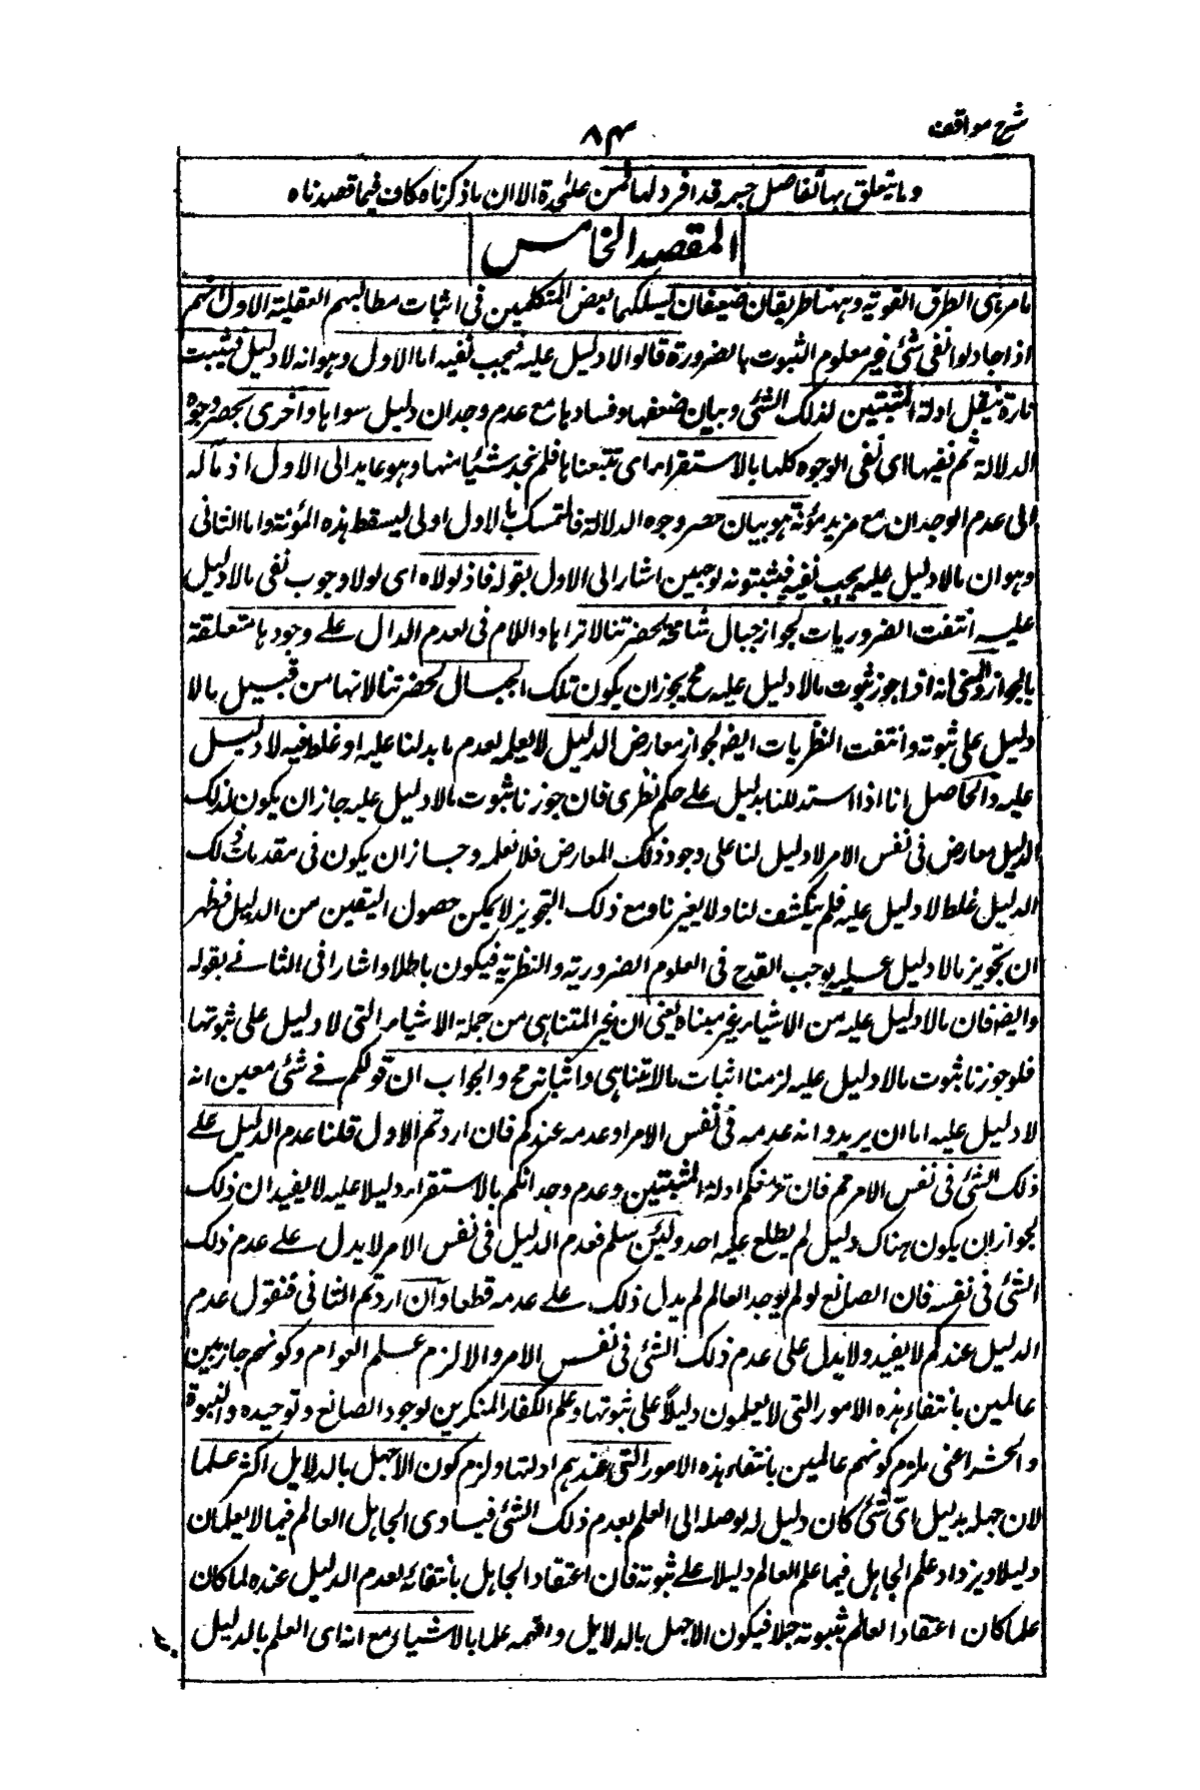 شرح مواقف
۸۴
وما يتعلق بها تفاصيل جمة قد افرد لها فن علٰحدة الا ان ما ذكرناه كاف فيما قصدناه
المقصد الخامس
ما مر هى الطرق القوية وههنا طريقان ضعيفان يسلكهما بعض المتكلمين فى اثبات مطالبهم العقلية الاول انهم
اذا حاولوا نفى شئ غير معلوم الثبوت بالضرورة قالوا لا دليل عليه فيجب نفيه اما الاول وهو انه لا دليل فيثبت
تارة بنقل ادلة المثبتين لذلك الشئ وبيان ضعفها وفسادها مع عدم وجدان دليل سواها واخرى بحصر وجوه
الدلالة ثم نفيها اى نفى الوجوه كلها بالاستقراء اى تتبعناها فلم نجد شيئا منها وهو عايد الى الاول اذ مآله
الى عدم الوجدان مع مزيد مؤنة هو بيان حصر وجوه الدلالة فالتمسك بالاول اولى ليسقط هذه المؤنة واما الثانى
وهو ان ما لا دليل عليه يجب نفيه فيثبتونه لوجهين اشار الى الاول بقوله فاذ لولاه اى لولا وجوب نفى ما لا دليل
عليه انتفت الضروريات لجواز جبال شامخة بحضرتنا لا نراها واللام فى لعدم الدال على وجودها متعلقة
بالجواز والمعنى انه اذا جوز ثبوت ما لا دليل عليه مح يجوز ان يكون تلك الجبال بحضرتنا لانها من قبيل ما لا
دليل على ثبوته وانتفت النظريات ايضا لجواز معارض للدليل لا يعلم لعدم ما يدلنا عليه او غلط فيه لا دليل
عليه والحاصل انا اذا استدللنا بدليل على حكم نظرى فان جوزنا ثبوت ما لا دليل عليه جاز ان يكون لذلك
الدليل معارض فى نفس الامر لا دليل لنا على وجود ذلك المعارض فلا نعلمه وجاز ان يكون فى مقدمات ذلك
الدليل غلط لا دليل عليه فلم ينكشف لنا ولا لغيرنا ومع ذلك التجويز لا يمكن حصول اليقين من الدليل فظهر
ان تجويز ما لا دليل عليه يوجب القدح فى العلوم الضرورية والنظرية فيكون باطلا واشار الى الثانى بقوله
وايضا فان ما لا دليل عليه من الاشياء غير متناه يعنى ان غير المتناهى من جملة الاشياء التى لا دليل على ثبوتها
فلو جوزنا ثبوت ما لا دليل عليه لزمنا اثبات ما لا يتناهى واثباته مح والجواب ان قولكم فى شئ معين انه
لا دليل عليه اما ان يريدوا به عدمه فى نفس الامر او عدمه عندكم فان اردتم الاول قلنا عدم الدليل على
ذلك الشئ فى نفس الامر مم فان تزييفكم ادلة المثبتين وعدم وجدانكم بالاستقراء دليلا عليه لا يفيد ان ذلك
لجواز ان يكون هناك دليل لم يطلع عليه احد ولئن سلم فعدم الدليل فى نفس الامر لا يدل على عدم ذلك
الشئ فى نفسه فان الصانع لو لم يوجد العالم لم يدل ذلك على عدمه قطعا وان اردتم الثانى فنقول عدم
الدليل عندكم لا يفيد ولا يدل على عدم ذلك الشئ فى نفس الامر والا لزم علم العوام وكونهم جازمين
عالمين بانتفاء هذه الامور التى لا يعلمون دليلا على ثبوتها وعلم الكفار المنكرين لوجود الصانع وتوحيده والنبوة
والحشر اعنى يلزم كونهم عالمين بانتفاء هذه الامور التى عندهم ادلتها ولزم كون الاجهل بالدلايل اكثر علما
لان جهله بدليل اى شئ كان دليل له يوصله الى العلم بعدم ذلك الشئ فيساوى الجاهل العالم فيما لا يعلمان
دليلا ويزداد علم الجاهل فيما علم العالم دليلا على ثبوته فان اعتقاد الجاهل بانتفائه لعدم الدليل عنده لما كان
علما كان اعتقاد العالم بثبوته جهلا فيكون الاجهل بالدلايل وافهمه علما بالاشياء مع انه اى العلم بالدليل